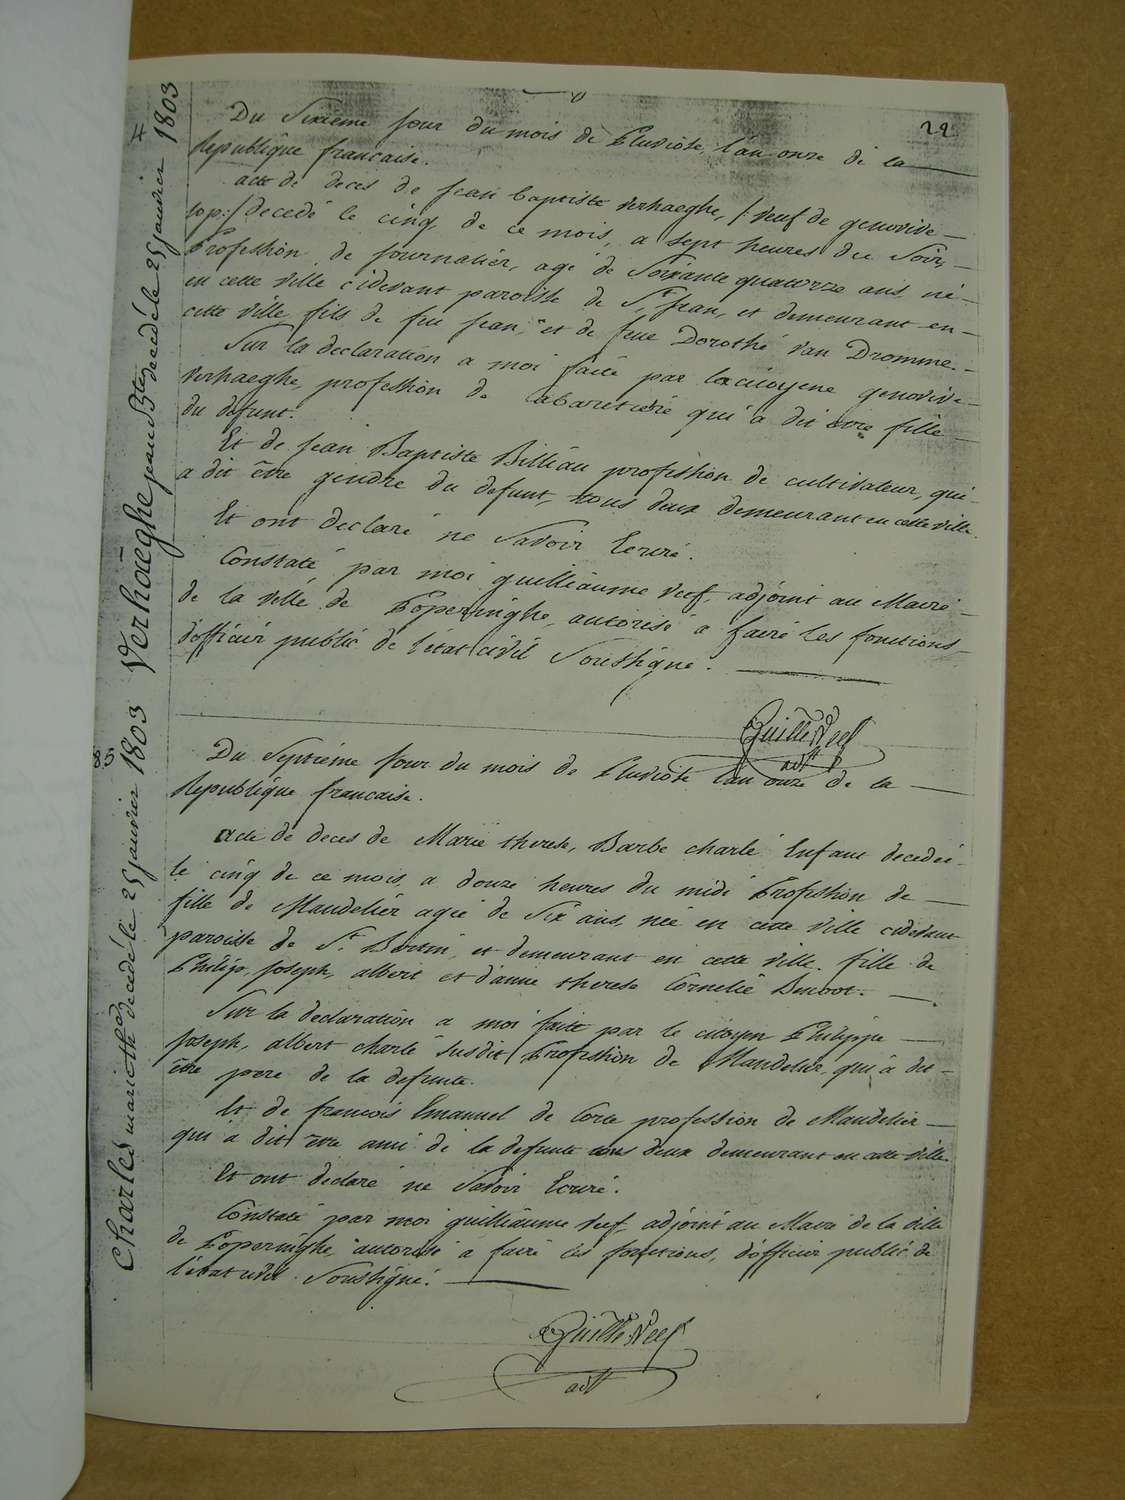 22
4
Verhaeghe jean Bte decedé le 25 janvier 1803
Du Sixieme jour du mois de Pluviôse l'an onze de la
Republique francaise.
acte de deces de jean baptiste verhaeghe, /: veuf de genovive
sop:/ decedé le cinq de ce mois, a sept heures du Soir,
Profession de journalier, agé de Soixante quatorze ans né
en cette ville cidevant paroisse de St jean, et demeurant en
cette ville fils de feu jean, et de feue Dorothé van Dromme.
Sur la declaration a moi faite par la citoyene genovive
verhaeghe, profession de Cabaretiere qui a dit être fille
du defunt.
Et de jean Baptiste Billiau profession de cultivateur, qui
a dit être gendre du defunt, tous deux demeurant en cette ville.
Et ont declaré ne Savoir Ecrire.
Constaté par moi guilliaume Neef, adjoint au Maire
de la ville de Poperinghe, autorisé a faire les fonctions
d'officier public de l'état civil Soussigné.
Guille Neef
adjt
85
Charles marie the decedé le 25 janvier 1803
Du Septieme jour du mois de Pluviôse l'an onze de la
Republique francaise.
acte de deces de Marie therese, Barbe charle Enfant decedeé
le cinq de ce mois, a douze heures du midi Profession de
fille de Mandelier ageé de Six ans, neé en cette ville cidevant
paroisse de St Bertin, et demeurant en cette ville. fille de
Philip, joseph, albert et d'anne therese Cornelie Benoot.
Sur la declaration a moi faite par le citoyen Philippe
joseph, albert charle Susdit Profession de Mandelier, qui a dit
être pere de la defunte.
Et de francois Emanuel de Corte profession de Mandelier
qui a dit être ami de la defunte tous deux demeurant en cette ville
Et ont declaré ne Savoir Ecrire.
Constaté par moi guilliaume Neef, adjoint au Maire de la ville
de Poperinghe, autorisé a faire les fonctions, d'officier public de
l'état civil Soussigné.
Guille Neef
adjt